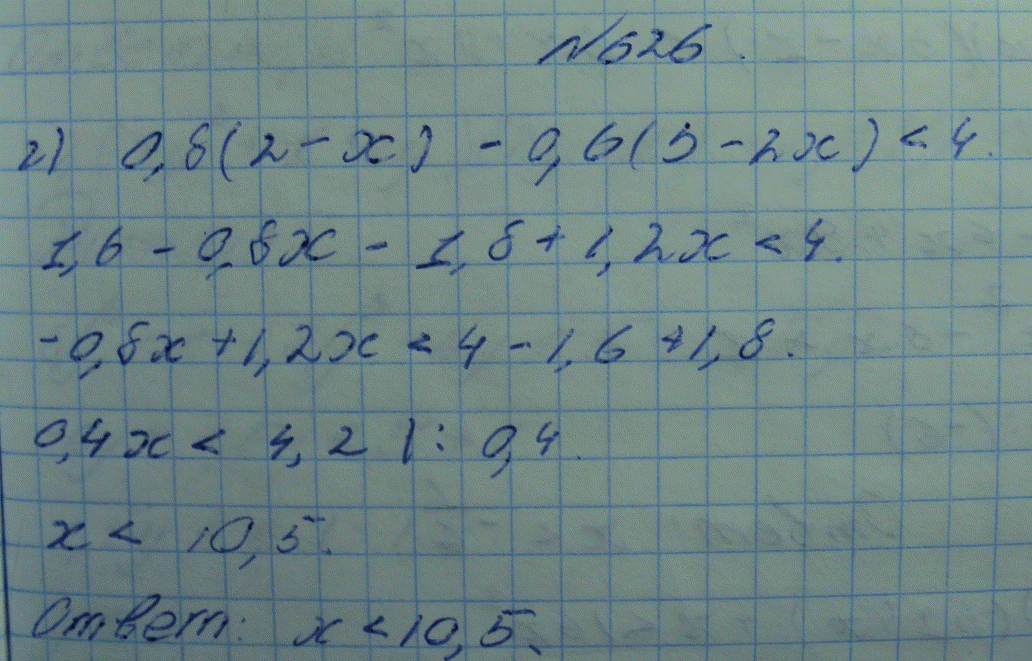 №626.
г) 0,8(2-x) - 0,6(3-2x) < 4.
1,6 - 0,8x - 1,8 + 1,2x < 4.
-0,8x + 1,2x < 4 - 1,6 + 1,8.
0,4x < 4,2 |: 0,4.
x < 10,5.
Ответ: x < 10,5.